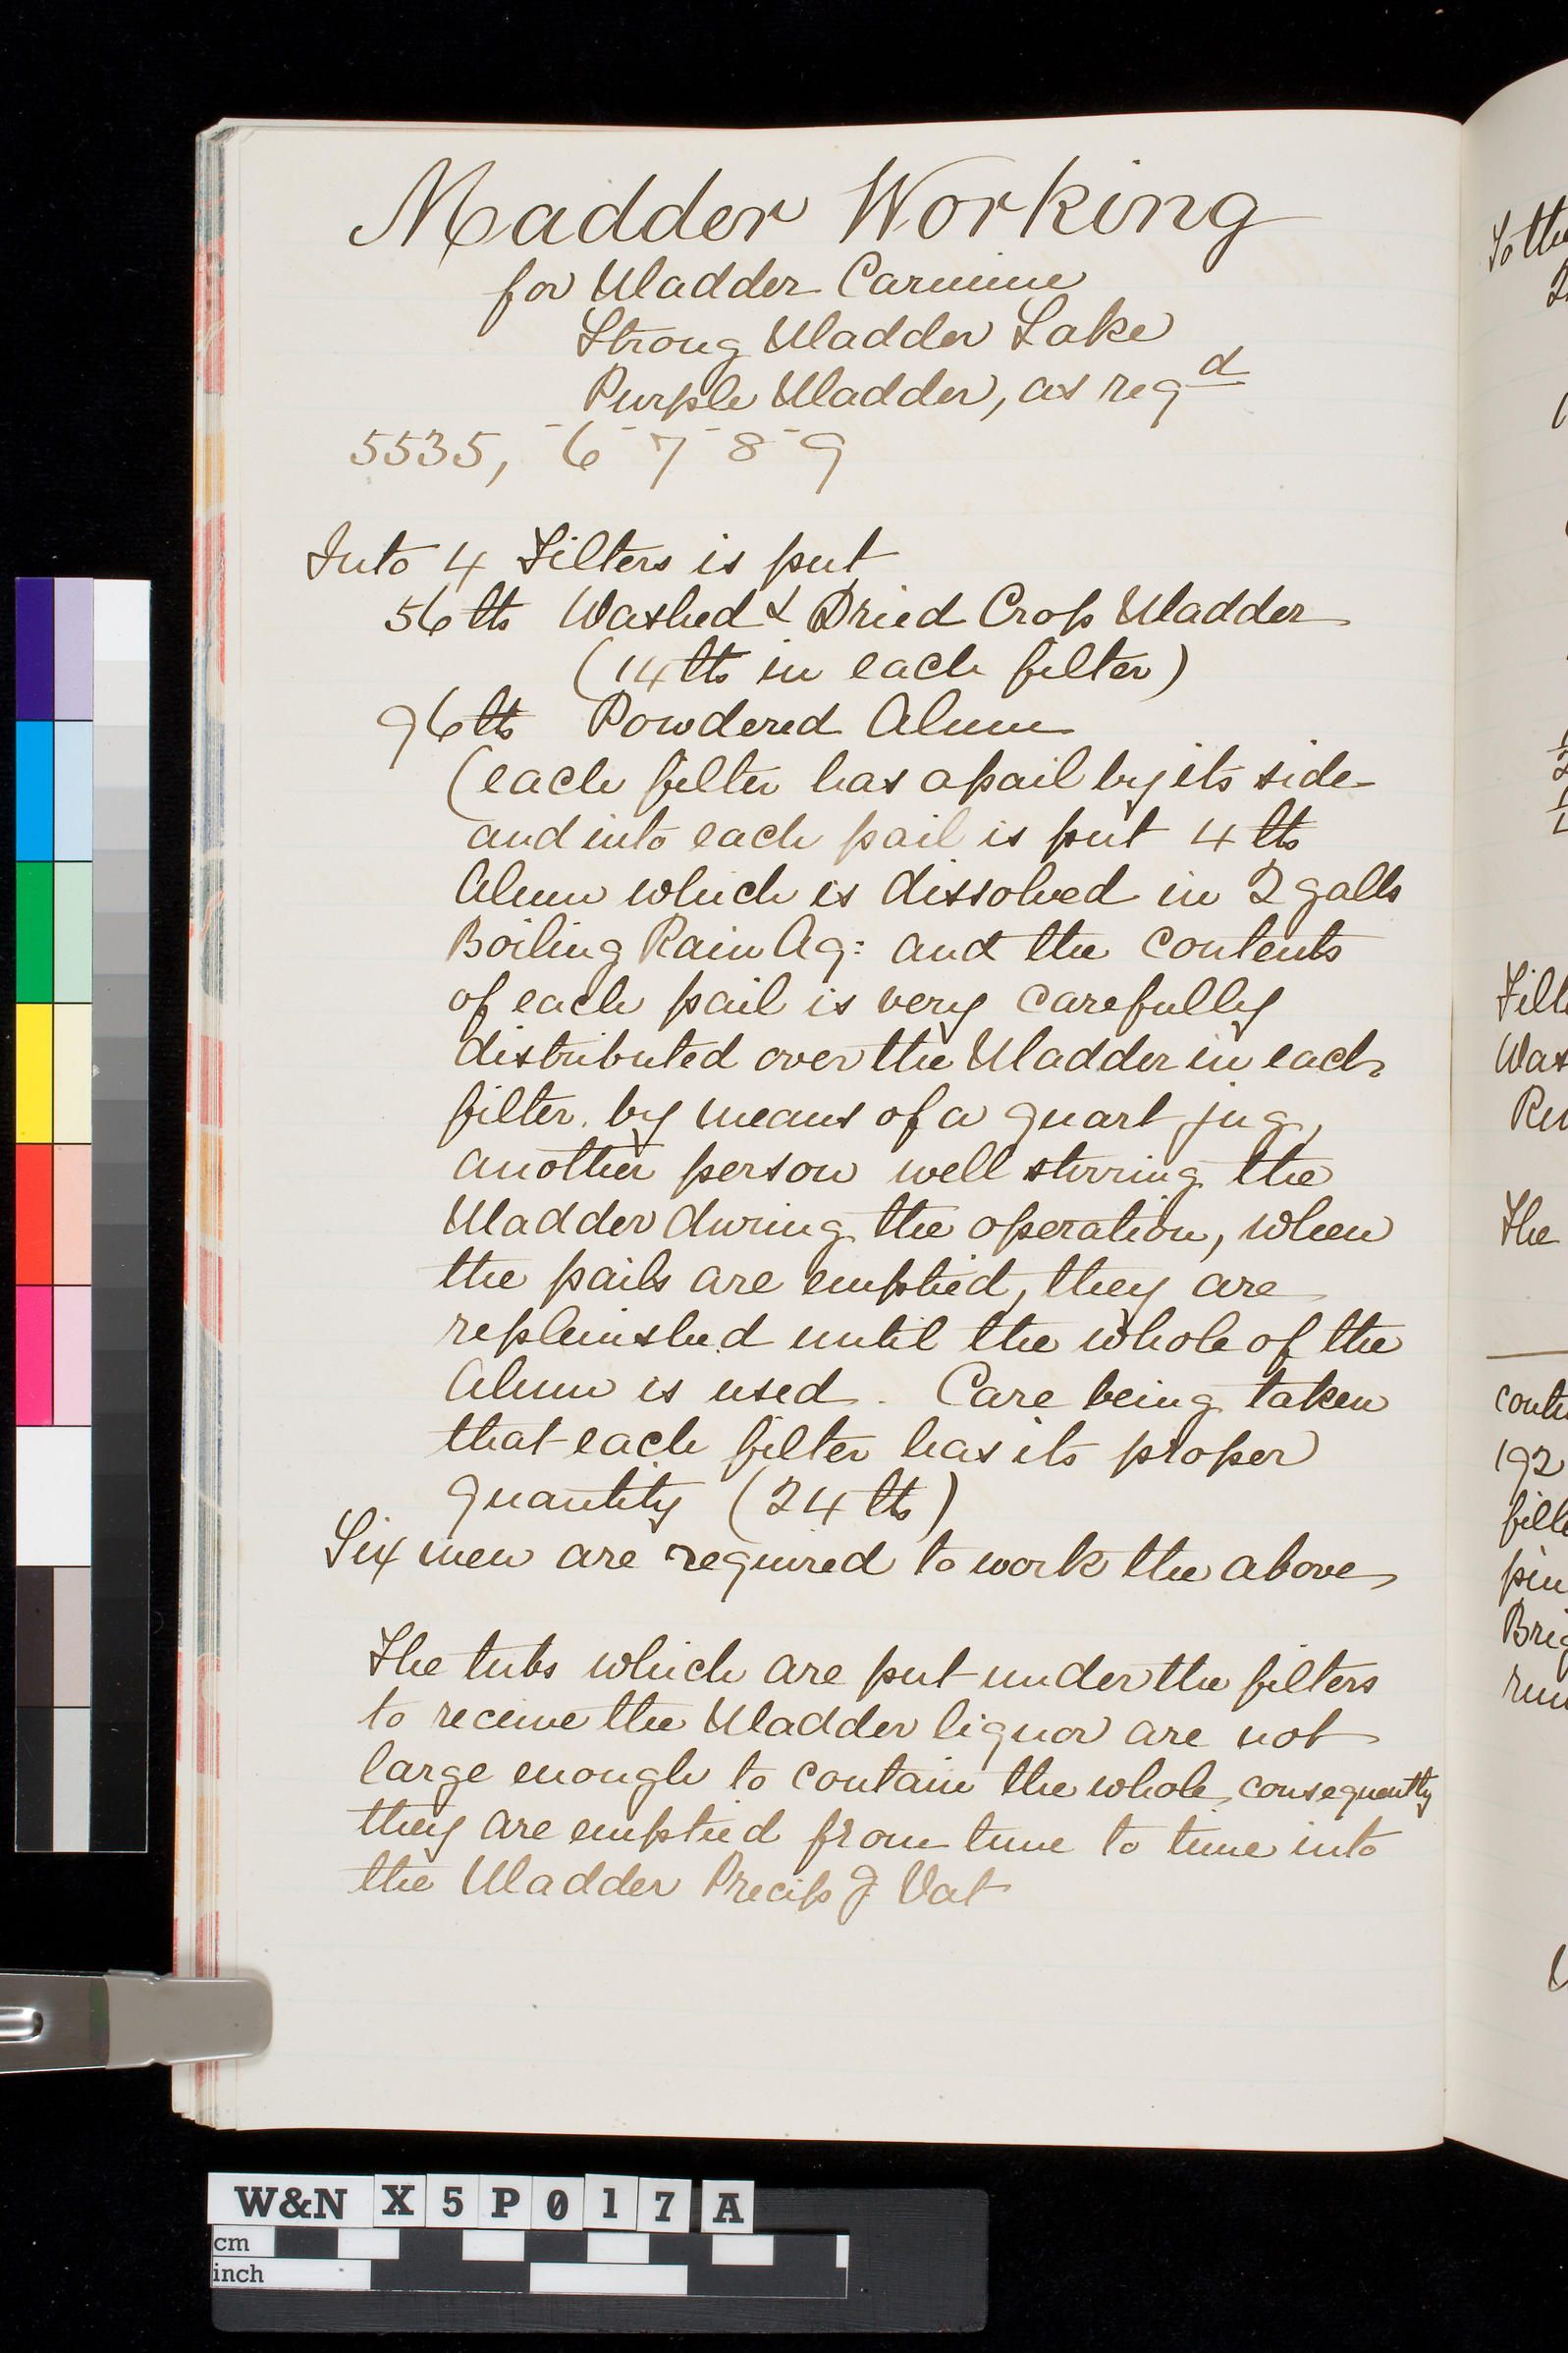 Madder Working
for Madder Carmine
Strong Madder Lake
Purple Madder, as reqd
5535, -6 -7 -8 -9
Into 4 Filters is put
56 lbs Washed & Dried Crop Madder
(14 lbs in each filter)
96 lbs Powdered Alum
(each filter has a pail by its side
and into each pail is put 4 lbs
Alum which is dissolved in 2 galls
Boiling Rain Aq: and the contents
of each pail is very carefully
distributed over the Madder in each
filter. by means of a quart jug,
another person well stirring the
Madder during the operation, when
the pails are emptied, they are
replenished until the whole of the
Alum is used. Care being taken
that each filter has its proper
quantity (24 lbs)
Six men are required to work the above
The tubs which are put under the filters
to receive the Madder liquor are not
large enough to contain the whole, consequently
they are emptied from time to time into
the Madder Precip g Vat
To the
Filt
Was
The
192
W&N X 5 P 0 1 7 A
cm
inch